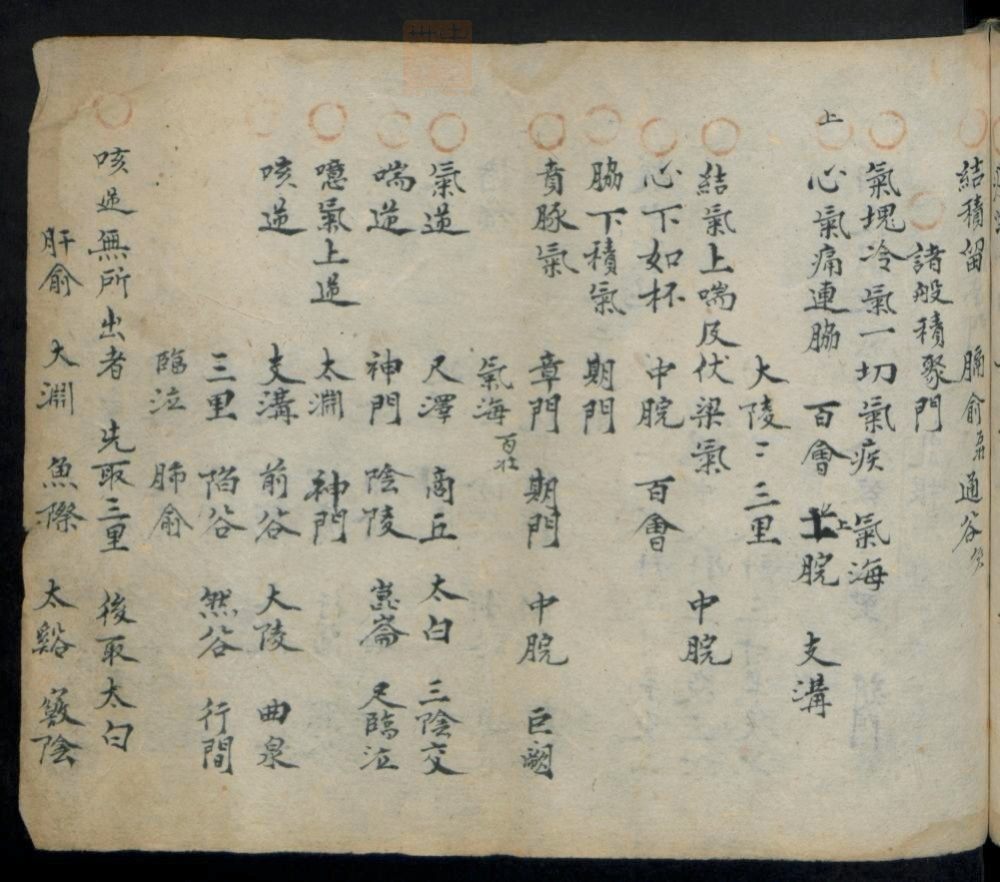 結積留 膈俞 通谷
諸般積聚門
氣塊冷氣一切氣疾 氣海
上
心氣痛連脇 百會 上脘 支溝
大陵 三里
結氣上喘及伏梁氣 中脘
心下如杯 中脘 百會
脇下積氣 期門
賁豚氣 章門 期門 中脘 巨闕
氣海百壯
氣逆 尺澤 商丘 太白 三陰交
喘逆 神門 陰陵 崑崙 足臨泣
噫氣上逆 太淵 神門
咳逆 支溝 前谷 大陵 曲泉
三里 陷谷 然谷 行間
臨泣 肺俞
咳逆無所出者 先取三里 後取太白
肝俞 大淵 魚際 太谿 竅陰